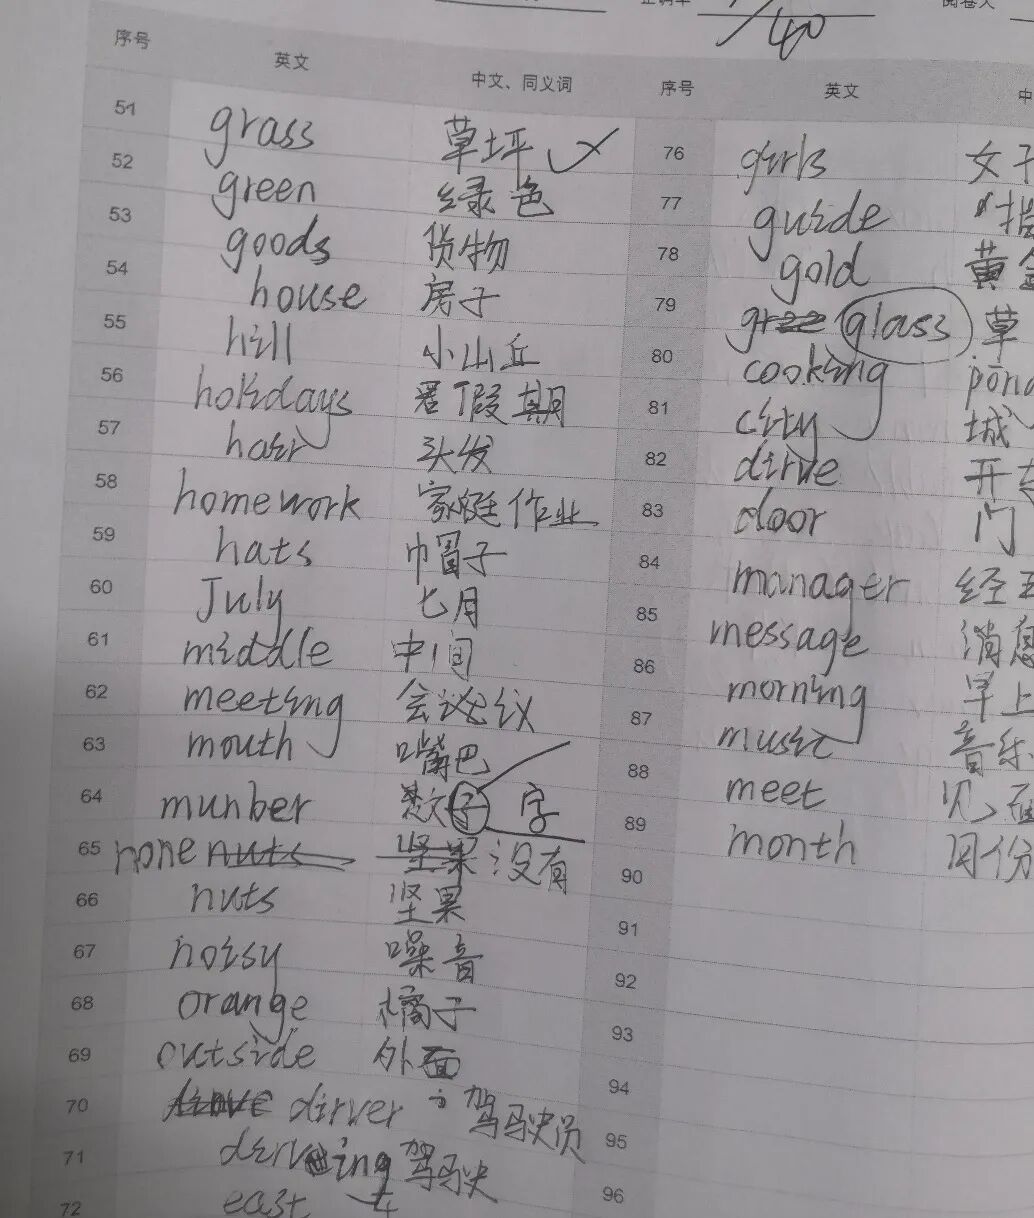 序号 英文 中文、同义词
51 grass 草坪
52 green 绿色
53 goods 货物
54 house 房子
55 hill 小山丘
56 holidays 暑假期
57 hair 头发
58 homework 家庭作业
59 hats 帽子
60 July 七月
61 middle 中间
62 meeting 会议
63 mouth 嘴巴
64 munber 数字 字
65 none nuts 坚果 没有
66 nuts 坚果
67 noisy 噪音
68 orange 橘子
69 outside 外面
70 dirver 驾驶员
71 driving 驾驶
72 east
/40
序号 英文 中
76 girls 女子
77 guide
78 gold 黄金
79 glass 草
80 cooking
81 city 城
82 dirve 开
83 door 门
84 manager 经
85 message 消息
86 morning 早上
87 music 音乐
88 meet 见面
89 month 月份
90
91
92
93
94
95
96